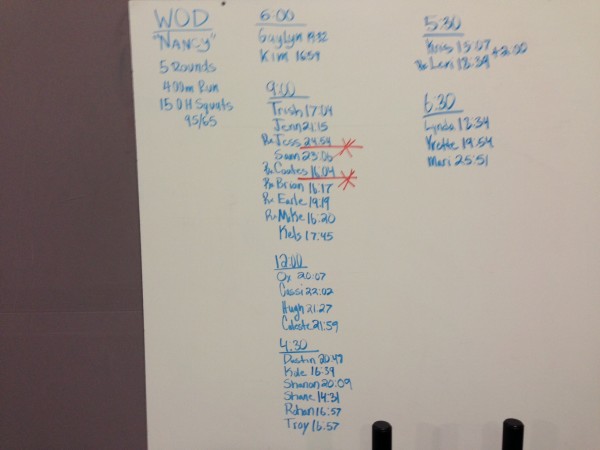 WOD
"NANCY"
5 Rounds
400m Run
15 OH Squats
95/65
6:00
Gaylyn
Kim 16:59
9:00
Trish 17:04
Jenn 21:15
Rx Jess 24:54
Sam 23:06
Rx Coates 16:04
Rx Brian 16:17
Rx Earle 19:19
Rx Mike 16:20
Kels 17:45
12:00
Oy 20:07
Cassi 22:02
Hugh 21:27
Celeste 21:59
4:30
Dustin 20:47
Kyle 16:39
Sharon 20:09
Shane 14:31
Rohan 16:57
Troy 16:57
5:30
Kris 15:07
Rx Len 18:39 +2:00
6:30
Lynda 18:34
Yvette 19:54
Mari 25:51